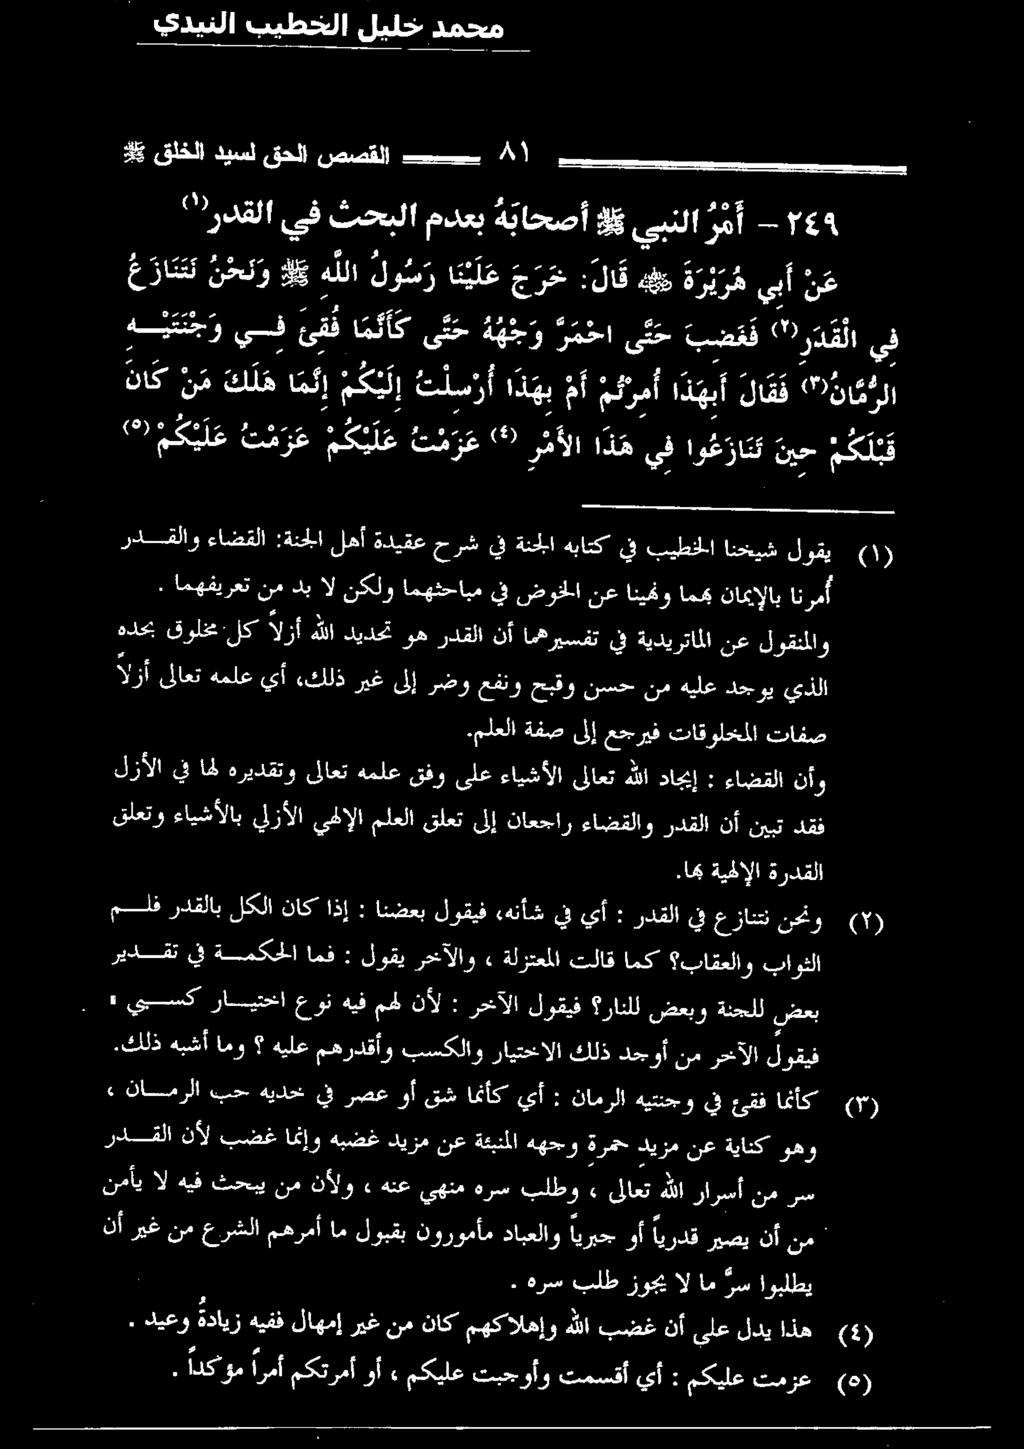 محمد خليل الخطيب النيدي
القصص الحق لسيد الخلق ﷺ ٨١
٢٤٩ – أَمْرُ النبي ﷺ أصحابَهُ بعدم البحث في القدر(١)
عَنْ أَبِي هُرَيْرَةَ ﷺ قَالَ: خَرَجَ عَلَيْنَا رَسُولُ اللَّهِ ﷺ وَنَحْنُ نَتَنَازَعُ
فِي الْقَدَرِ(٢) فَغَضِبَ حَتَّى احْمَرَّ وَجْهُهُ حَتَّى كَأَنَّمَا فُقِئَ فِي وَجْنَتَيْهِ
الرُّمَّانُ(٣) فَقَالَ أَبِهَذَا أُمِرْتُمْ أَمْ بِهَذَا أُرْسِلْتُ إِلَيْكُمْ إِنَّمَا هَلَكَ مَنْ كَانَ
قَبْلَكُمْ حِينَ تَنَازَعُوا فِي هَذَا الأَمْرِ (٤) عَزَمْتُ عَلَيْكُمْ عَزَمْتُ عَلَيْكُمْ(٥)
(١) يقول شيخنا الخطيب في كتابه الجنة في شرح عقيدة أهل الجنة: القضاء والقدر
أُمرنا بالإيمان بهما ونهينا عن الخوض في مباحثهما ولكن لا بد من تعريفهما .
والمنقول عن الماتريدية في تفسيرهما أن القدر هو تحديد الله أزلاً كل مخلوق بحده
الذي يوجد عليه من حسن وقبح ونفع وضر إلى غير ذلك، أي علمه تعالى أزلاً
صفات المخلوقات فيرجع إلى صفة العلم.
وأن القضاء : إيجاد الله تعالى الأشياء على وفق علمه تعالى وتقديره لها في الأزل
فقد تبين أن القدر والقضاء راجعان إلى تعلق العلم الإلهي الأزلي بالأشياء وتعلق
القدرة الإلهية بها.
(٢) ونحن نتنازع في القدر : أي في شأنه، فيقول بعضنا : إذا كان الكل بالقدر فلم
الثواب والعقاب؟ كما قالت المعتزلة ، والآخر يقول : فما الحكمة في تقدير
بعضٍ للجنة وبعض للنار؟ فيقول الآخر : لأن لهم فيه نوع اختيار كسبي
فيقول الآخر من أوجد ذلك الاختيار والكسب وأقدرهم عليه ؟ وما أشبه ذلك.
(٣) كأنما فقئ في وجنتيه الرمان : أي كأنما شق أو عصر في خديه حب الرمان ،
وهو كناية عن مزيد حمرة وجهه المنبئة عن مزيد غضبه وإنما غضب لأن القدر
سر من أسرار الله تعالى ، وطلب سره منهي عنه ، ولأن من يبحث فيه لا يأمن
من أن يصير قدرياً أو جبرياً والعباد مأمورون بقبول ما أمرهم الشرع من غير أن
يطلبوا سرَّ ما لا يجوز طلب سره .
(٤) هذا يدل على أن غضب الله وإهلاكهم كان من غير إمهال ففيه زيادةُ وعيد .
(٥) عزمت عليكم : أي أقسمت وأوجبت عليكم ، أو أمرتكم أمراً مؤكداً .